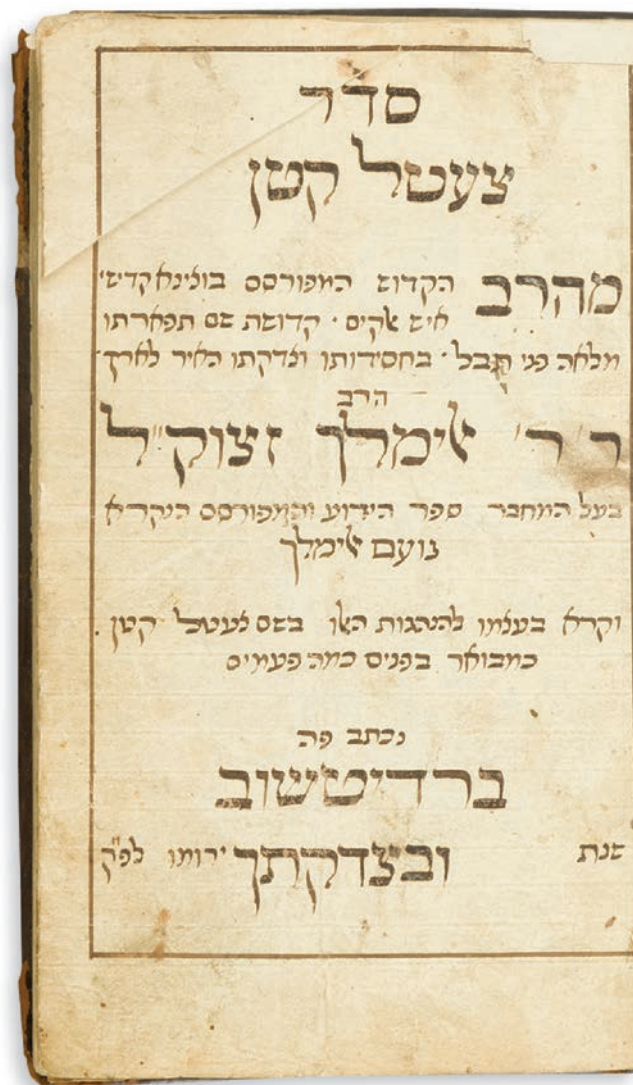 סדר
צעטל קטן
מהרב הקדוש המפורסם בוצינא קדישי'
איש אקים · קדושת שם תפארתו
מלאה פני תבל · בחסידותו וצדקתו האיר לארץ ·
הרב
ר' ר' אלימלך זצוק"ל
בעל המחבר ספר הידוע והמפורסם הנקרא
נועם אלימלך
וקרא בעצמו להנהגות האלו בשם צעטל קטן .
כמבואר בפנים כמה פעמים
נכתב פה
ברדיטשוב
שנת ובצדקתך ירומו לפ"ק